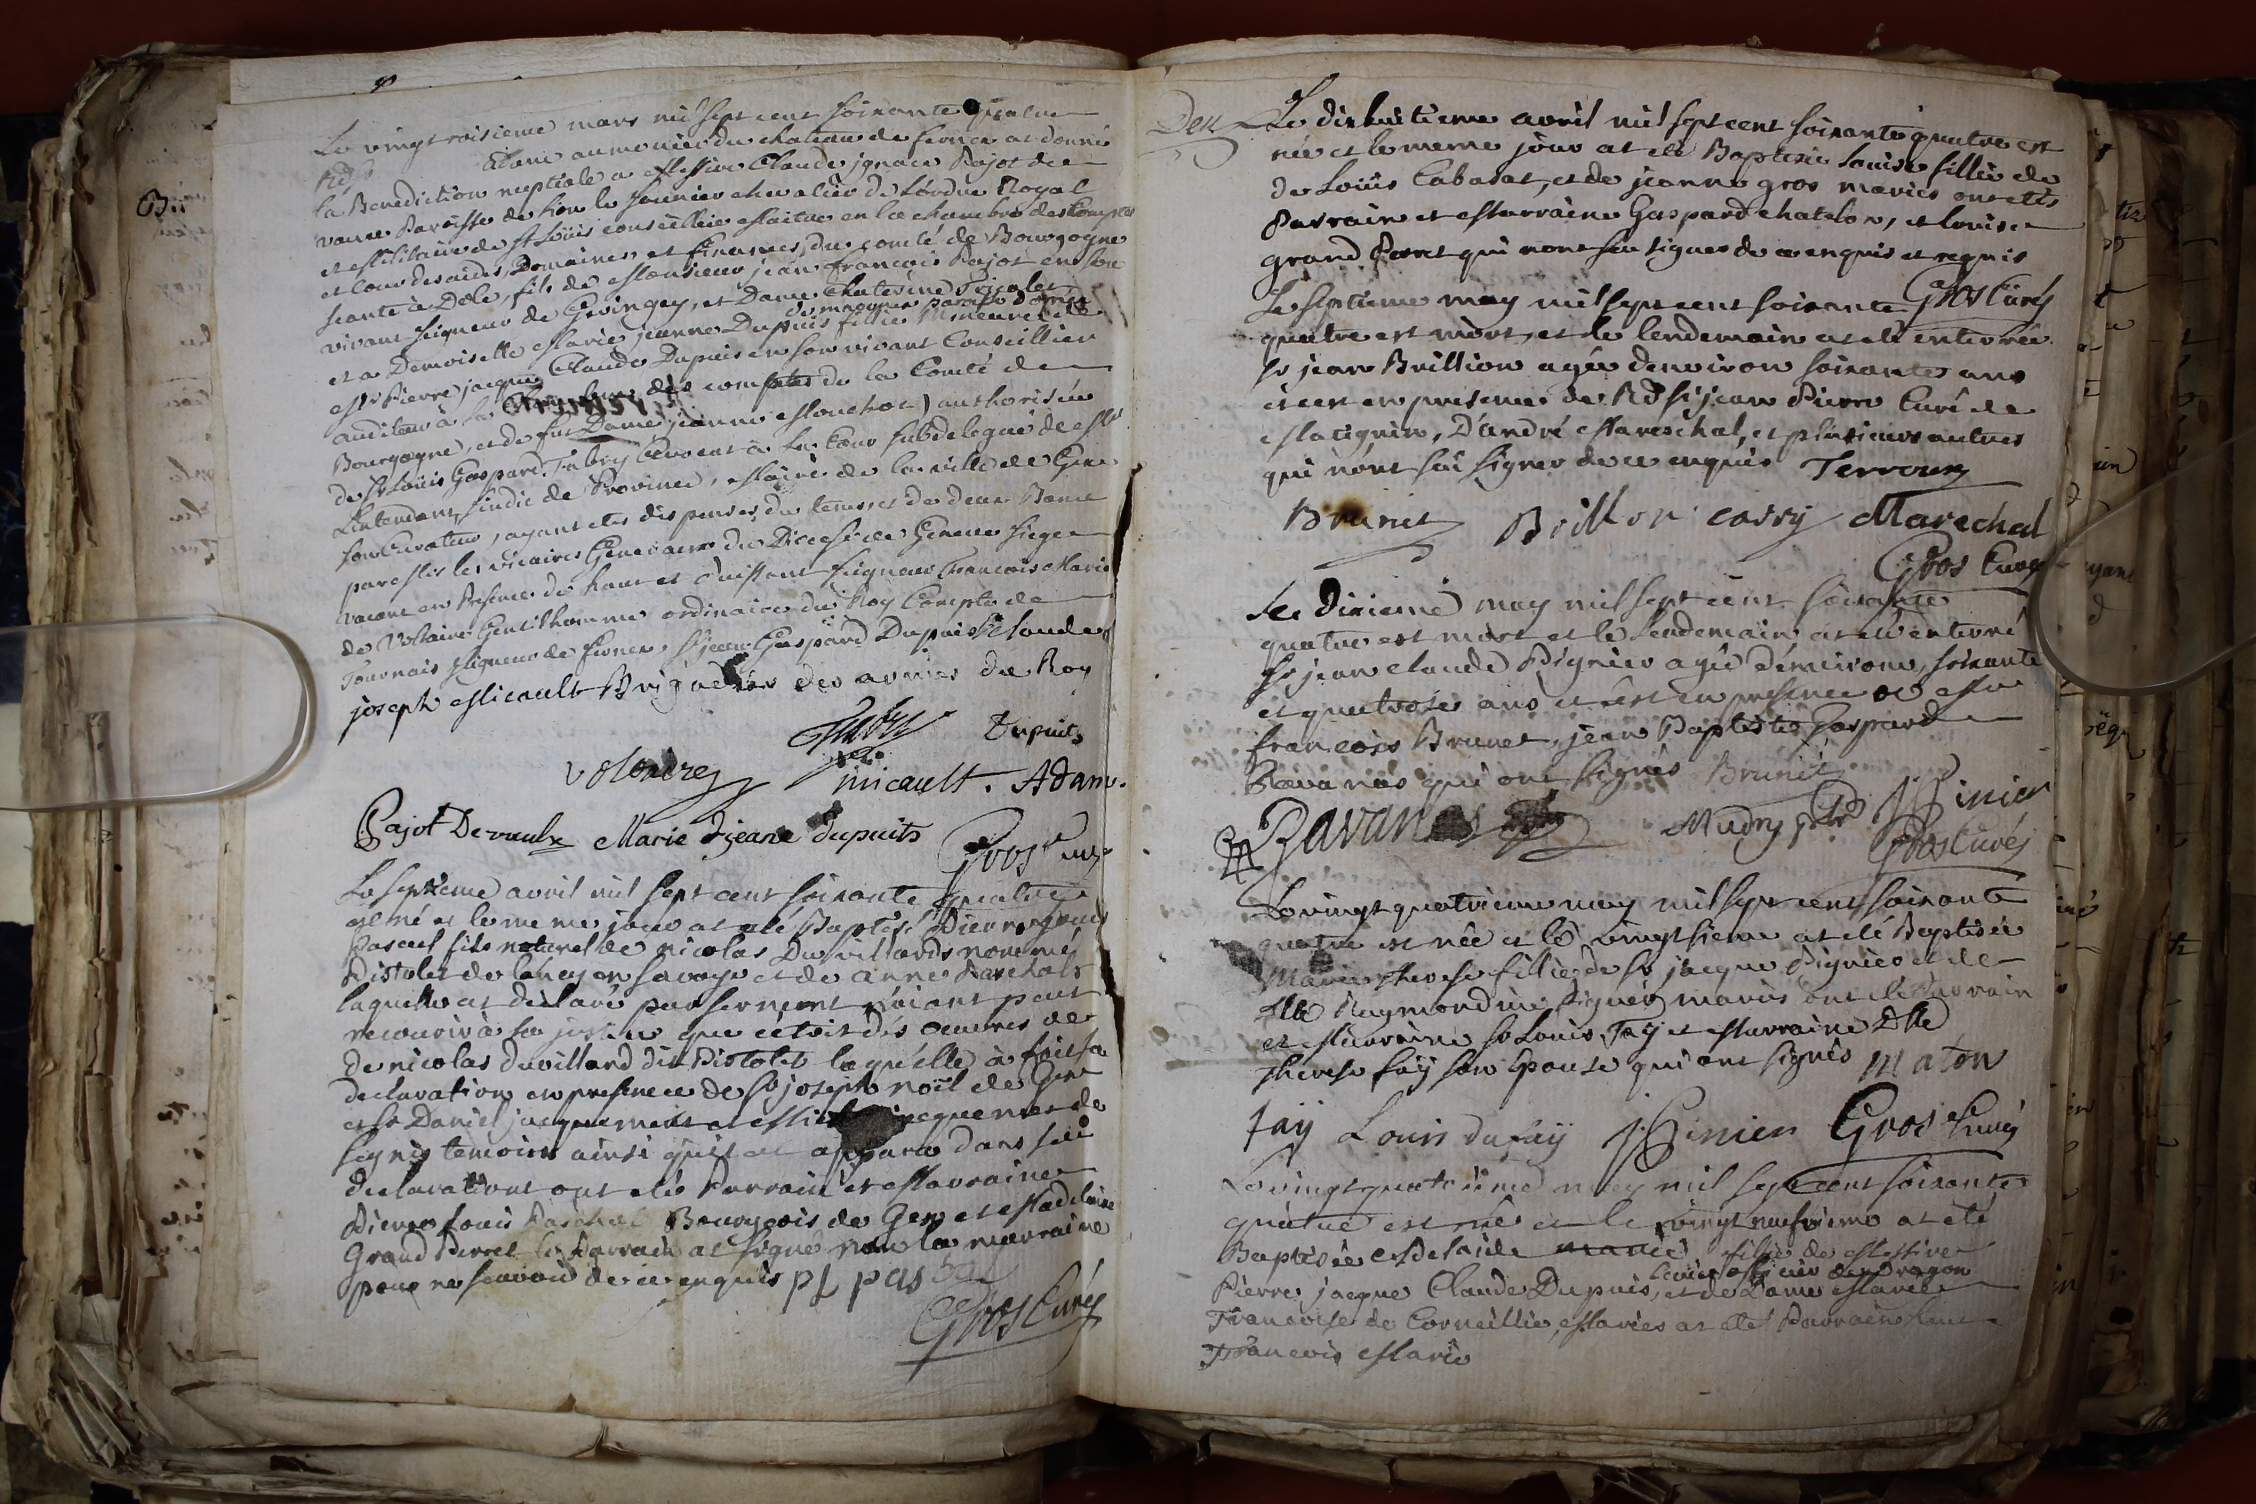 Le vingt roisieme mars mil sept cent soixante quatre
Rd Adam aumonier du chateau de ferner at donné
la Benediction nuptiale a Messire Claude jgnace Pajot de
vaux Paroisse de Lion le Saunier chevalier de L'ordre Royal
et Militaire de St Loüis conseiller Maitre en la chambre des Comptes
et cour des aides, Domaines et finances, du comté de Bourgogne
seante à Dole, fils de Monsieur jean françois Pajot en son
vivant seigneur de Gevingey, et Dame
et a Demoiselle Marie jeanne Dupuis fillie mineure de
Mr Pierre jacque Claude Dupuis en son vivant Conseillier
auditeur à la Chambre des comptes de la Comté de
Bourgogne, et de fue Dame jeanne Mouchot) authorisée
de Sr Loüis Gaspard Fabry avocat à la cour subdelegué de Mr
L'intendant, sindic de Province, Maire de la ville de Gex
son Curateur, ayant etes dispenses du tems et de deux Bans
par Mrs les vicaires Generaux du Diocese de Geneve siege
vacant en Presence de haut et Puissant seigneur françois Marie
de Voltaire Gentilhomme ordinaire du Roy Compte de
Tournais seigneur de ferner, Sr jean Gaspard Dupuis Claude
joseph Micault Brigadier des armées du Roy
Fabry Dupuits
voltaire micault. Adam.
Pajot Devaulx Marie Jjeane dupuits Gros Curé
Le septieme avril mil sept cent soixante quatre
est né et le meme jour at eté Baptisé Pierre
Pascal fils naturel de nicolas Duvillards nommé
Pistolet de lancy en savoye et de anne Paschal
laquelle at declaré par serment
recourir à sa que cetoit des oeuvres de
de nicolas duvillard dit Pistolet laquelle à fait sa
declaration en presence de Sr joseph noël de Gex
et Sr Daniel jacquemet et jacquemet de
segnis temoins ainsi qu'il at apparu dans sa
declaration ont etés Parrain et Marraine
Pierre Louis Paschal Bourgeois de Gex et Madelaine
Grand Perret le Parrain at signé non la marraine
pour ne scavoir de ce enquis pl pas
Gros Curé
Le dixhuitieme avril mil sept cent soixante quatre est
née et le meme jour at eté Baptisée louise fillie de
de Loüis Cabasat, et de jeanne gros mariés ont etés
Parrain et Marraine Gaspard chatelon, et louise
grand Perret qui nont scu signer de ce enquis et requis
Gros Curé
Le septieme may mil sept cent soixante
quatre est mort, et le lendemain at eté enterré
Sr jean Brillion agée denviron soixante ans
et c'est en presence de Rd Sr jean Pierre Curé de
Matignin, D'andré Mareschal, et plusieurs autres
qui n'ont scu signer de ce enquis Terroux
Brunet Brillon cossy Marechal
Gros Curé
Le dixieme may mil sept cent soixante
quatre est mort et le lendemain at eté enterré
Sr jean claude Pignier agée d'environ, soixante
et quatorze ans et c'est en presence de Mr
françois Brunet, jean Baptiste Gaspard
Ravanas qui ont signés Brunet
Ravanas Mudry ptre J Pinier
Gros Curé
Le vingt quatrieme may mil sept cent soixante
quatre est née et le vingt sieme at eté Baptisée
Marie therese fillie de Sr jacque Pignier et de
Dlle Raymondine mariés ont eté Parrain
et Marraine Sr Louis Fay et Marraine Dlle
therese faÿ son Epouse qui ont signés maton
faÿ Louis du faÿ J Pinier Gros Curé
Le vingt quatrieme may mil sept cent soixante
quatre est née et le vingt neufvieme at eté
Baptisée Adelaide fillie de Messire
Pierre jacque Claude Dupuis, officier de Dragon et de Dame Marie
Françoise de Corneillie, Mariés at eté Parrain haut
François Marie